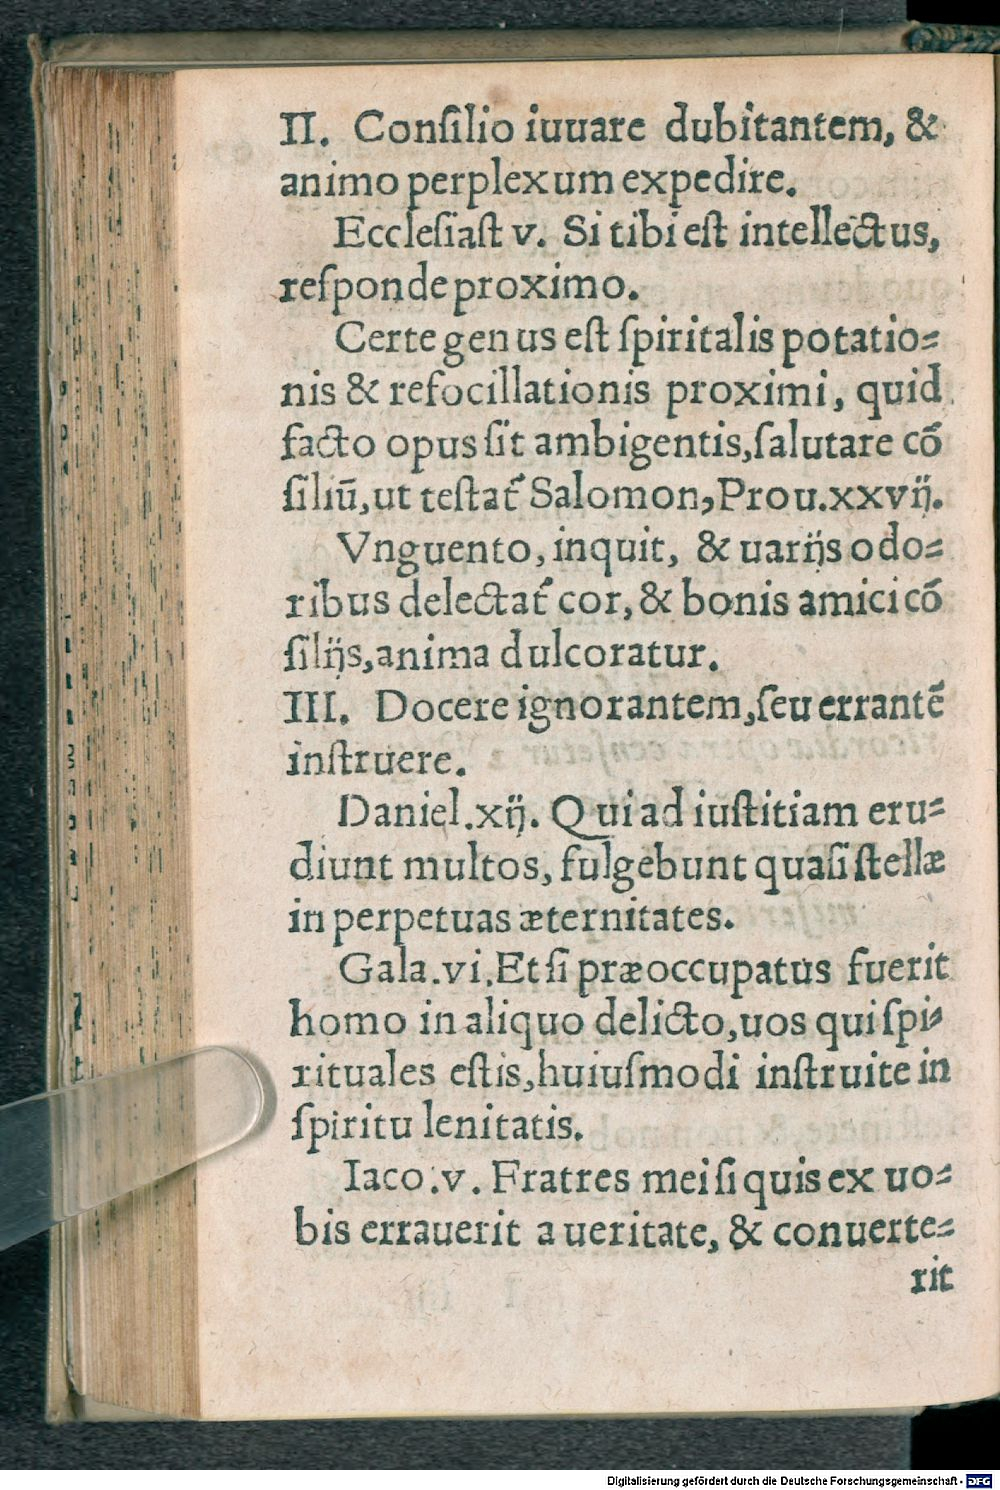 II. Conſilio iuuare dubitantem, &
animo perplexum expedire.
Eccleſiaſt v. Si tibi eſt intellectus,
reſponde proximo.
Certe genus eſt ſpiritalis potatio⸗
nis & refocillationis proximi, quid
facto opus ſit ambigentis, ſalutare cõ
ſiliũ, ut teſtat᷑ Salomon, Prou. xxvij.
Vnguento, inquit, & uarijs odo⸗
ribus delectat᷑ cor, & bonis amici cõ
ſilijs, anima dulcoratur.
III. Docere ignorantem, ſeu errantẽ
inſtruere.
Daniel. xij. Qui ad iuſtitiam eru⸗
diunt multos, fulgebunt quaſi ſtellæ
in perpetuas æternitates.
Gala. vi. Et ſi præoccupatus fuerit
homo in aliquo delicto, uos qui ſpi⸗
rituales eſtis, huiuſmodi inſtruite in
ſpiritu lenitatis.
Iaco. v. Fratres mei ſi quis ex uo⸗
bis errauerit a ueritate, & conuerte⸗
rit
Digitalisierung gefördert durch die Deutsche Forschungsgemeinschaft - DFG